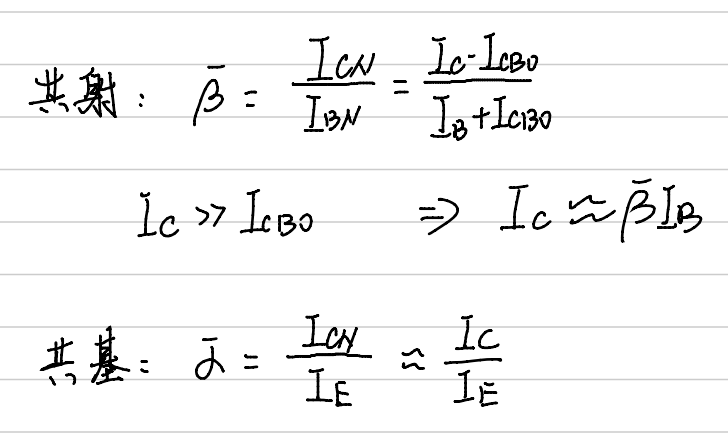 共射: β̄ = I_CN / I_BN = (I_C - I_CBO) / (I_B + I_CBO)
I_C >> I_CBO ⇒ I_C ≈ β̄ I_B
共基: ᾱ = I_CN / I_E ≈ I_C / I_E